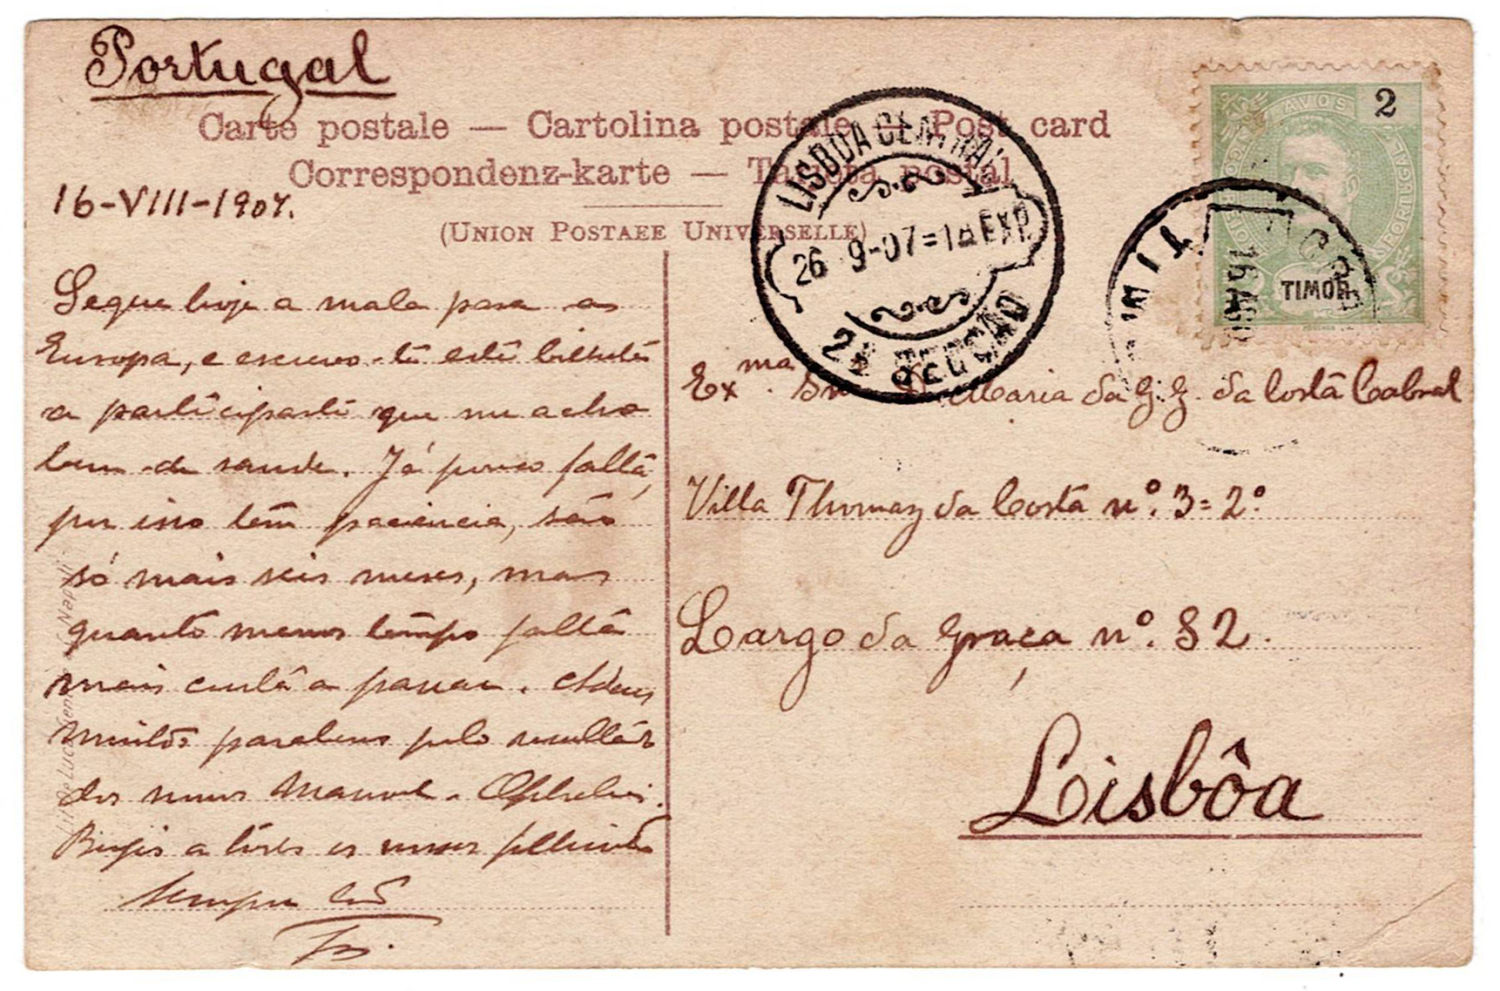 Portugal
Carte postale — Cartolina postale — Post card
Correspondenz-karte — Tarjeta postal
(UNION POSTAEE UNIVERSELLE)
16-VIII-1907.
Segue hoje a mala para as
Europa, e escrevo-te este bilhete
a participarte que me acho
bem de saude. Já pouco falta,
por isso tem paciencia, são
só mais seis meses, mas
quanto menos tempo falta
mais custa a passar. Adeus
muitos parabens pelo
dos meus Manoel
Beijos a todos os
sempre teu
LISBOA CENTRAL
26 9-07=1A EXP.
2ª SECÇÃO
AVOS
2
TIMOR
16 AGO
Exma Snra D. Maria da G. G. da Costa Cabral
Villa Thomaz da Costa nº. 3=2º
Largo da Graça nº. 82.
Lisbôa